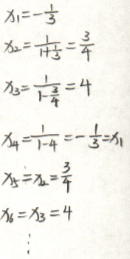 x₁=-1/3
x₂=1/(1+1/3)=3/4
x₃=1/(1-3/4)=4
x₄=1/(1-4)=-1/3=x₁
x₅=x₂=3/4
x₆=x₃=4
⋮